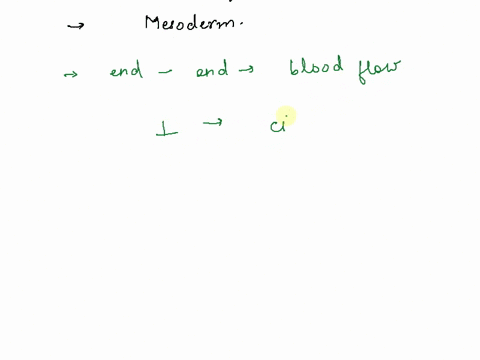 → Mesoderm.
→ end - end → blood flow
⊥ → ci